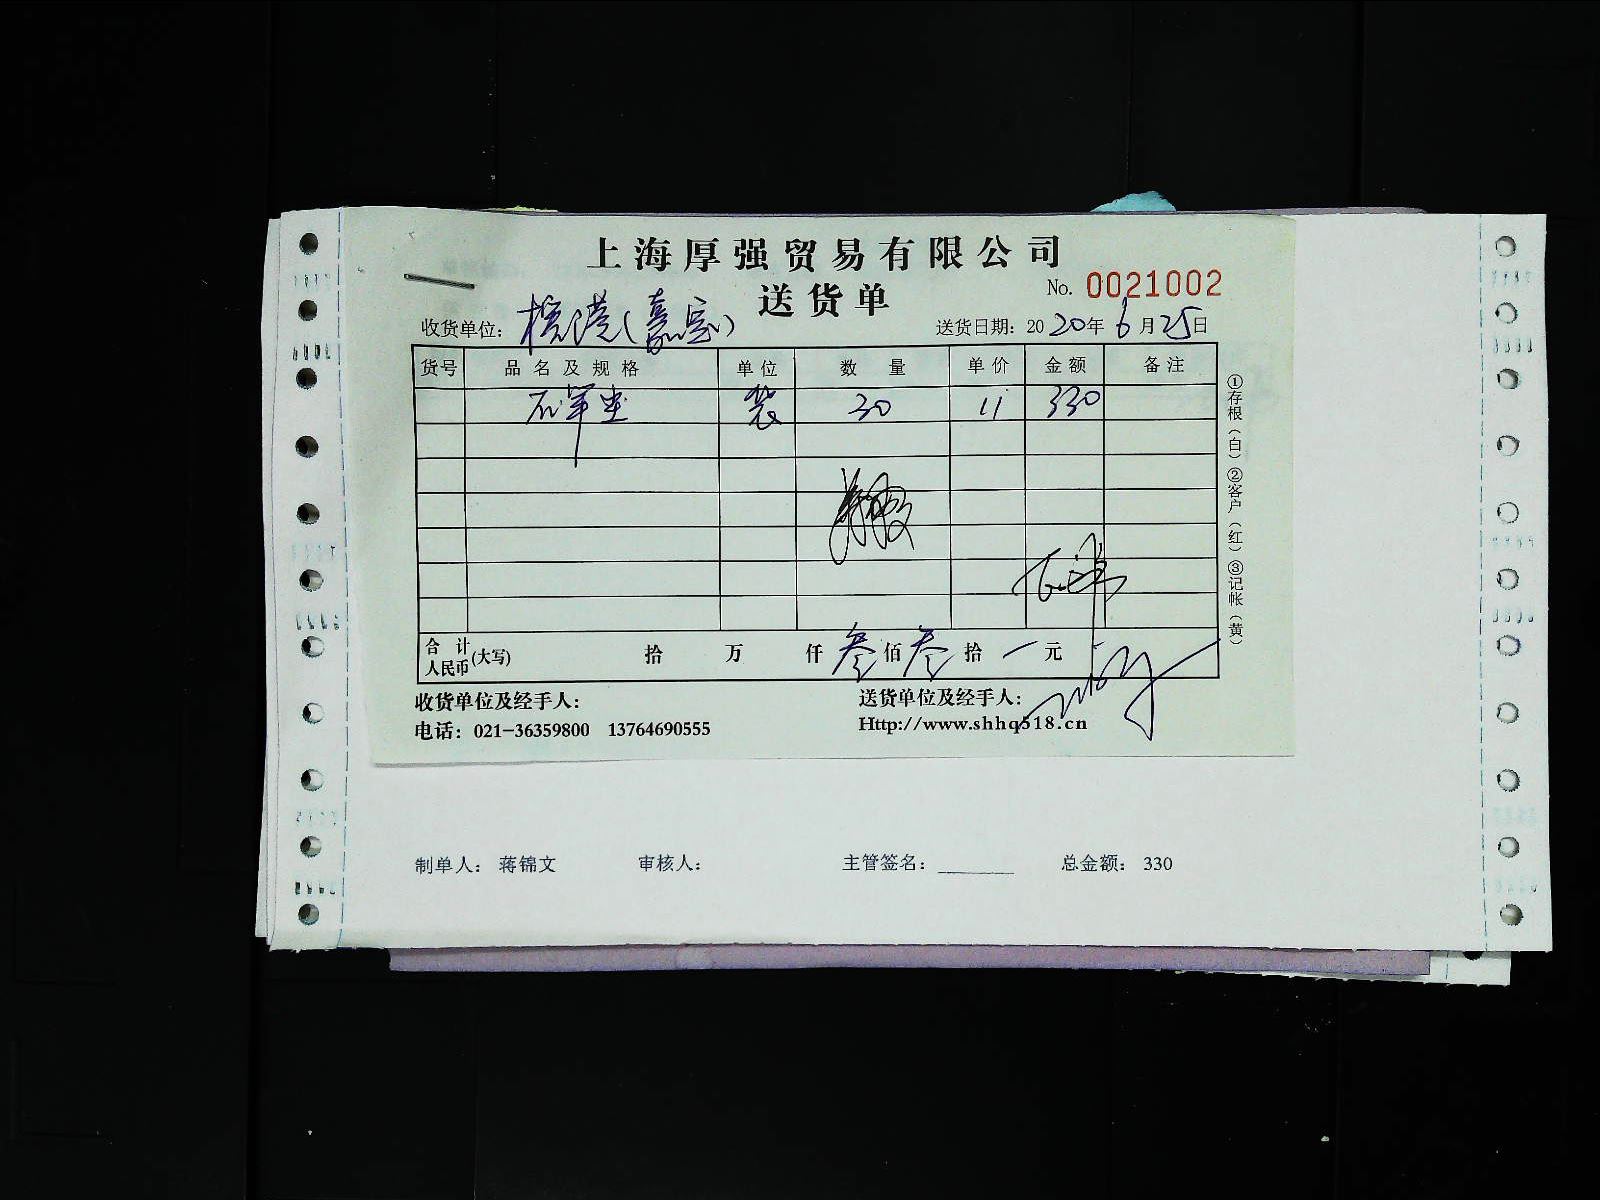 上海厚强贸易有限公司
送货单
No. 0021002
收货单位： （嘉定） 送货日期：2020年6月25日
货号 品名及规格 单位 数量 单价 金额 备注
30 11 330
合计人民币(大写) 拾 万 仟 叁佰叁拾 一 元
收货单位及经手人： 送货单位及经手人：
电话：021-36359800 13764690555 Http://www.shhq518.cn
①存根（白）②客户（红）③记帐（黄）
制单人： 蒋锦文 审核人： 主管签名：________ 总金额： 330